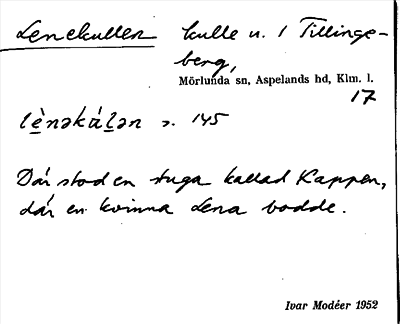 Lenekullen kulle n. 1 Tillinge-
berg,
Mörlunda sn, Aspelands hd, Klm. l.
17
lènəkálən s. 145
Där stod en stuga kallad Kappen,
där en kvinna Lena bodde.
Ivar Modéer 1952